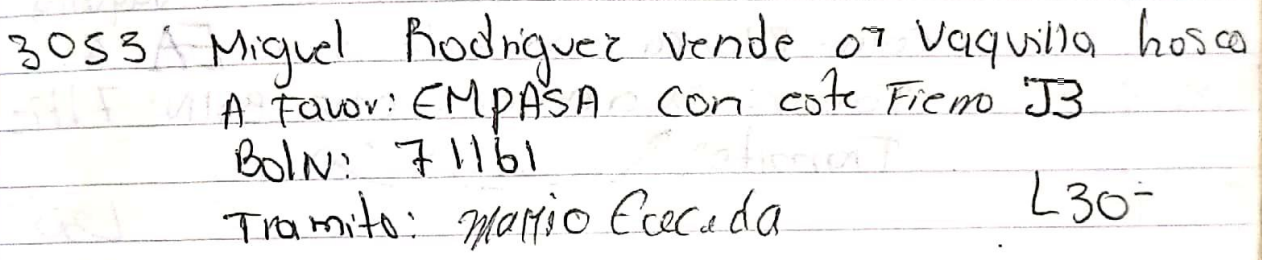 3053 Miguel Rodriguez vende 01 Vaquilla hosca
A Favor: EMPASA Con este Fierro J3
BolN: 71161
Tramito: Mario
L30-